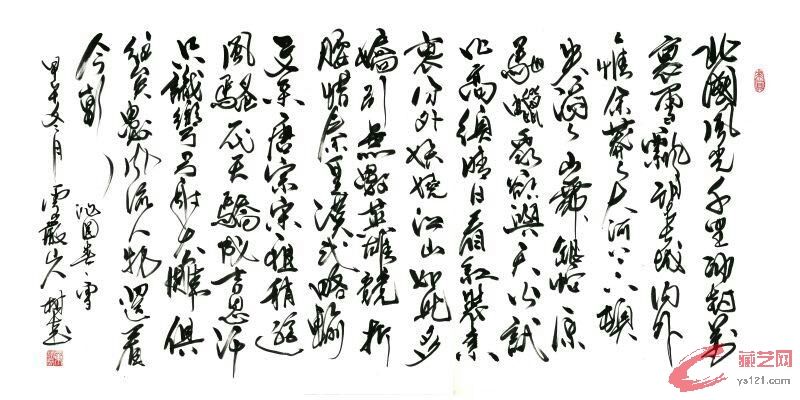 北國風光千里冰封萬
里雪飄望長城內外
惟余莽莽大河上下頓
失滔滔山舞銀蛇原
馳蠟象欲與天公試
比高須晴日看紅裝素
裹分外妖嬈江山如此多
嬌引無數英雄競折
腰惜秦皇漢武略輸
文采唐宗宋祖稍遜
風騷一代天驕成吉思汗
只識彎弓射大雕俱
往矣數風流人物還看
今朝
沁園春雪
甲午冬月雪巖山人樹
藏艺网
ys121.com